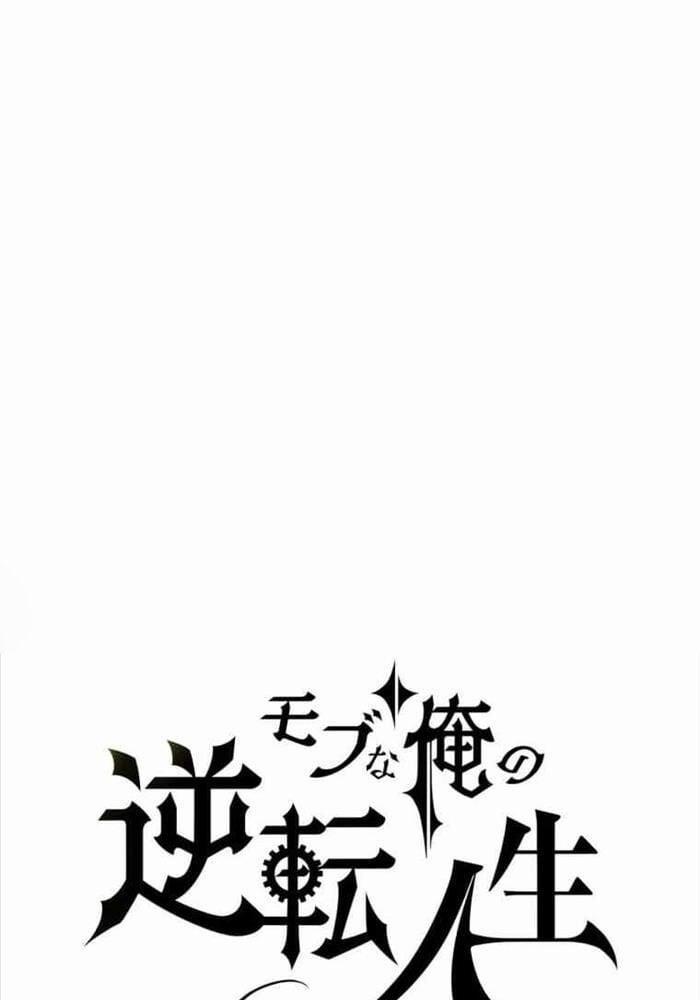 モブな俺の
逆転人生